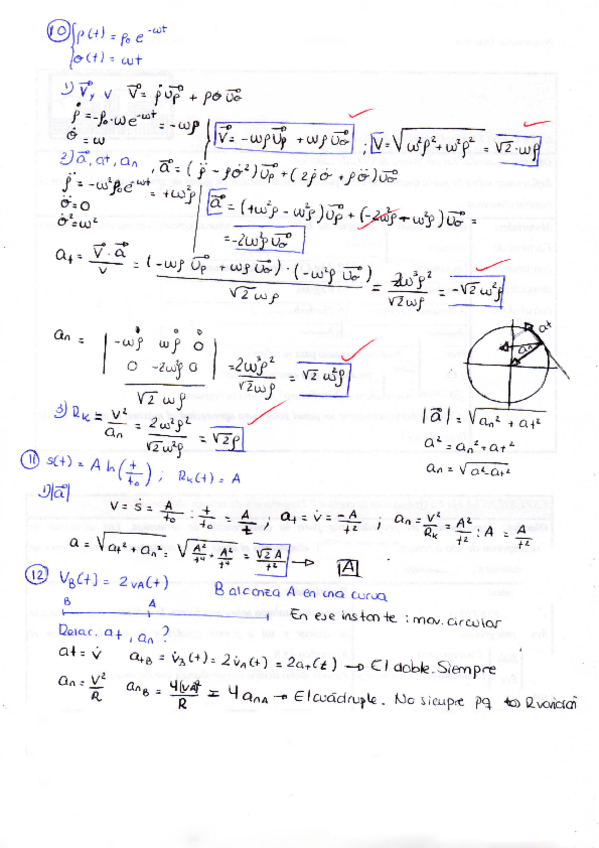 10 { ρ(t) = ρ₀ e^-ωt
θ(t) = ωt
1) v⃗, v v⃗ = ρ̇ u⃗ρ + ρθ̇ u⃗θ
ρ̇ = -ρ₀·ω e^-ωt = -ωρ
θ̇ = ω
v⃗ = -ωρ u⃗ρ + ωρ u⃗θ ; v = √(ω²ρ² + ω²ρ²) = √2·ωρ
2) a⃗, at, an, a⃗ = (ρ̈ - ρθ̇²) u⃗ρ + (2ρ̇θ̇ + ρθ̈) u⃗θ
ρ̈ = -ω²ρ₀e^-ωt = +ω²ρ
θ̈ = 0
θ̇² = ω²
a⃗ = (+ω²ρ - ω²ρ) u⃗ρ + (-2ω²ρ + ω²ρ) u⃗θ =
= -2ω²ρ u⃗θ
at = v⃗·a⃗ / v = (-ωρ u⃗ρ + ωρ u⃗θ)·(-ω²ρ u⃗θ) / √2 ωρ = 2ω³ρ² / √2ωρ = -√2 ω²ρ
an = | -ωρ ωρ 0
0 -2ωρ 0 | / √2 ωρ = 2ω³ρ² / √2ωρ = √2 ω²ρ
at
an
3) RK = v² / an = 2ω²ρ² / √2ω²ρ = √2ρ
|a⃗| = √(an² + at²)
a² = an² + at²
an = √(a²-at²)
11 s(t) = A ln(t/t₀) ; RK(t) = A
1) |a⃗|
v = ṡ = A/t₀ : t/t₀ = A/t ; at = v̇ = -A/t² ; an = v²/RK = A²/t² : A = A/t²
a = √(at² + an²) = √(A²/t⁴ + A²/t⁴) = √2 A / t² → A
12 VB(t) = 2vA(t) B alcanza A en una curva
B A
En ese instante : mov. circular
Relac. at, an ?
at = v̇ atB = v̇B(t) = 2v̇A(t) = 2at(t) → El doble. Siempre
an = v²/R anB = 4(vA)²/R = 4anA → El cuádruple. No siempre pq R variación